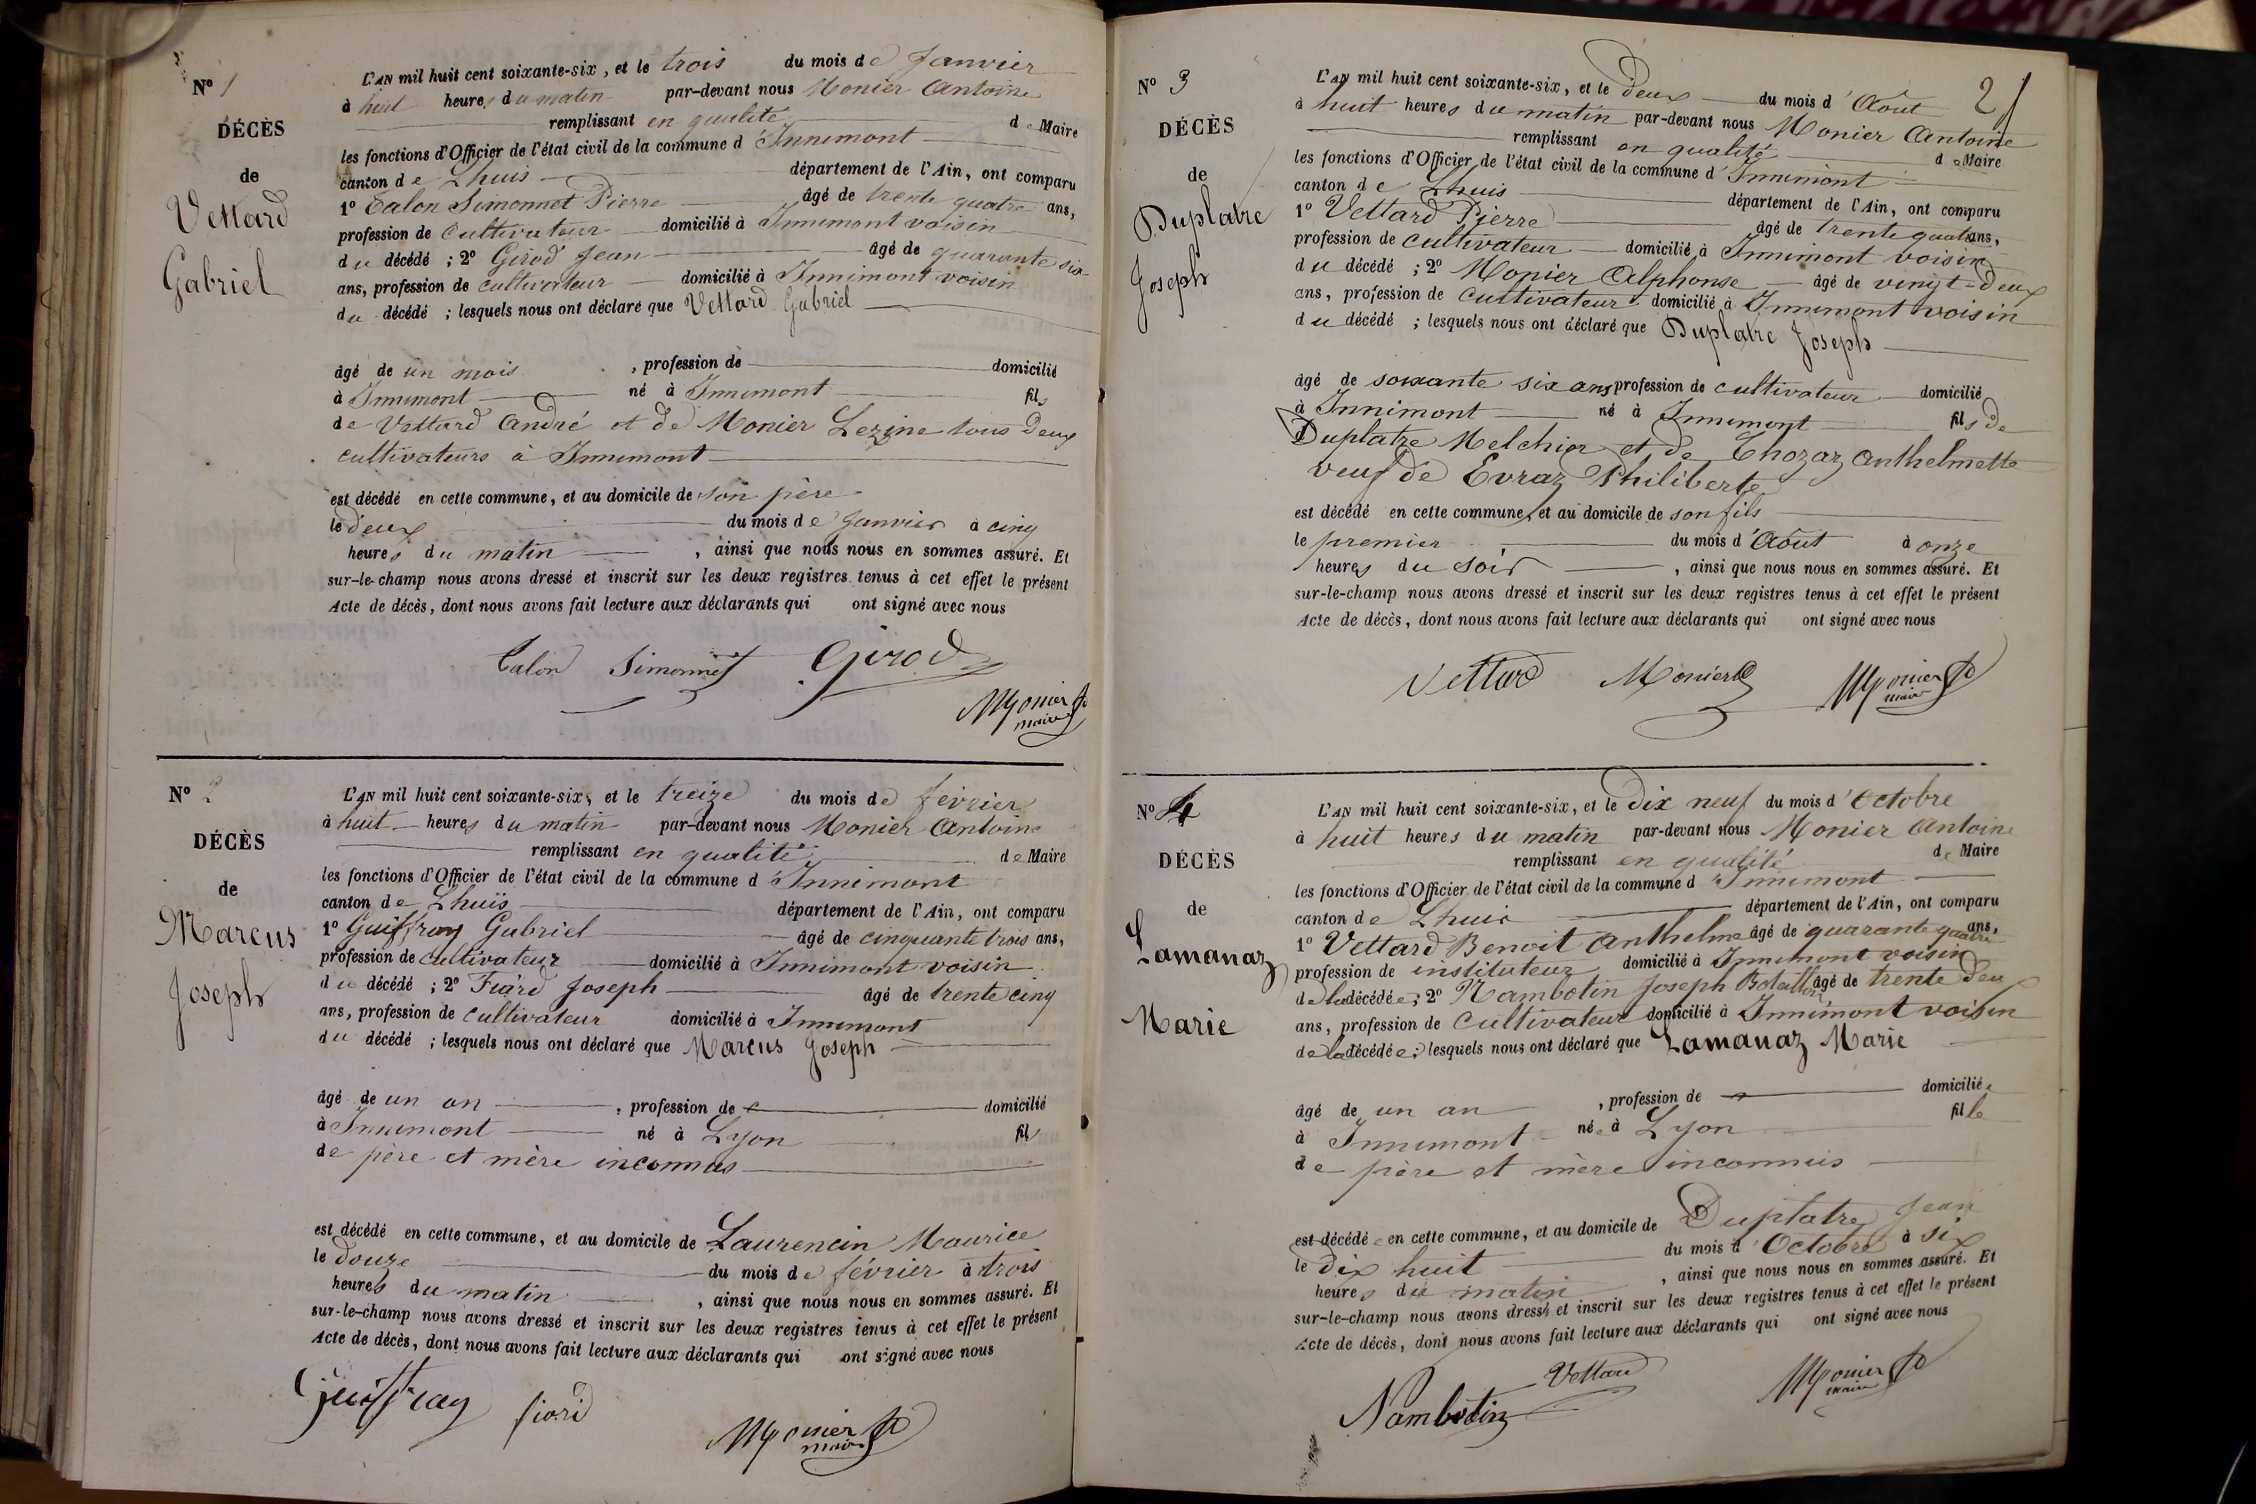 Nº 1
DÉCÈS
de
Vettard
Gabriel
L'AN mil huit cent soixante-six, et le trois du mois de Janvier
à huit heures du matin par-devant nous Monier Antoine
remplissant en qualité de Maire
les fonctions d'Officier de l'état civil de la commune d'Innimont
canton de Lhuis département de l'Ain, ont comparu
1º Calon Simonnet Pierre âgé de trente quatre ans,
profession de cultivateur domicilié à Innimont voisin
du décédé ; 2º Girod Jean âgé de quarante six
ans, profession de cultivateur domicilié à Innimont voisin
du décédé ; lesquels nous ont déclaré que Vettard Gabriel
âgé de un mois, profession de domicilié
à Innimont né à Innimont fils
de Vettard André et de Monier Lezine tous deux
cultivateurs à Innimont
est décédé en cette commune, et au domicile de son père
le deux du mois de Janvier à cinq
heures du matin, ainsi que nous nous en sommes assuré. Et
sur-le-champ nous avons dressé et inscrit sur les deux registres tenus à cet effet le présent
Acte de décès, dont nous avons fait lecture aux déclarants qui ont signé avec nous
Calon Simonnet Girod
Monier
maire
Nº 2
DÉCÈS
de
Marcus
Joseph
L'AN mil huit cent soixante-six, et le treize du mois de février
à huit heures du matin par-devant nous Monier Antoine
remplissant en qualité de Maire
les fonctions d'Officier de l'état civil de la commune d'Innimont
canton de Lhuis département de l'Ain, ont comparu
1º Guiffray Gabriel âgé de cinquante trois ans,
profession de cultivateur domicilié à Innimont voisin
du décédé ; 2º Fiard Joseph âgé de trente cinq
ans, profession de cultivateur domicilié à Innimont
du décédé ; lesquels nous ont déclaré que Marcus Joseph
âgé de un an, profession de domicilié
à Innimont né à Lyon fils
de père et mère inconnus
est décédé en cette commune, et au domicile de Laurencin Maurice
le douze du mois de février à trois
heures du matin, ainsi que nous nous en sommes assuré. Et
sur-le-champ nous avons dressé et inscrit sur les deux registres tenus à cet effet le présent
Acte de décès, dont nous avons fait lecture aux déclarants qui ont signé avec nous
Guiffray fiard
Monier
maire
2
Nº 3
DÉCÈS
de
Duplatre
Joseph
L'AN mil huit cent soixante-six, et le deux du mois d'Août
à huit heures du matin par-devant nous Monier Antoine
remplissant en qualité de Maire
les fonctions d'Officier de l'état civil de la commune d'Innimont
canton de Lhuis département de l'Ain, ont comparu
1º Vettard Pierre âgé de trente quatre ans,
profession de cultivateur domicilié à Innimont voisin
du décédé ; 2º Monier Alphonse âgé de vingt-deux
ans, profession de cultivateur domicilié à Innimont voisin
du décédé ; lesquels nous ont déclaré que Duplatre Joseph
âgé de soixante six ans profession de cultivateur domicilié
à Innimont né à Innimont fils de
Duplatre Melchior et de Chozaz Anthelmette
veuf de Evraz Philiberte
est décédé en cette commune, et au domicile de son fils
le premier du mois d'Août à onze
heures du soir, ainsi que nous nous en sommes assuré. Et
sur-le-champ nous avons dressé et inscrit sur les deux registres tenus à cet effet le présent
Acte de décès, dont nous avons fait lecture aux déclarants qui ont signé avec nous
Vettard Monier Monier
maire
Nº 4
DÉCÈS
de
Lamanaz
Marie
L'AN mil huit cent soixante-six, et le dix neuf du mois d'Octobre
à huit heures du matin par-devant nous Monier Antoine
remplissant en qualité de Maire
les fonctions d'Officier de l'état civil de la commune d'Innimont
canton de Lhuis département de l'Ain, ont comparu
1º Vettard Benoit Anthelme âgé de quarante quatre ans,
profession de instituteur domicilié à Innimont voisin
de la décédée ; 2º Nambotin Joseph âgé de trente deux
ans, profession de cultivateur domicilié à Innimont voisin
de la décédée ; lesquels nous ont déclaré que Lamanaz Marie
âgé de un an, profession de domiciliée
à Innimont née à Lyon fille
de père et mère inconnus
est décédée en cette commune, et au domicile de Duplatre Jean
le dix huit du mois d'Octobre à six
heures du matin, ainsi que nous nous en sommes assuré. Et
sur-le-champ nous avons dressé et inscrit sur les deux registres tenus à cet effet le présent
Acte de décès, dont nous avons fait lecture aux déclarants qui ont signé avec nous
Nambotin Vettard Monier
maire